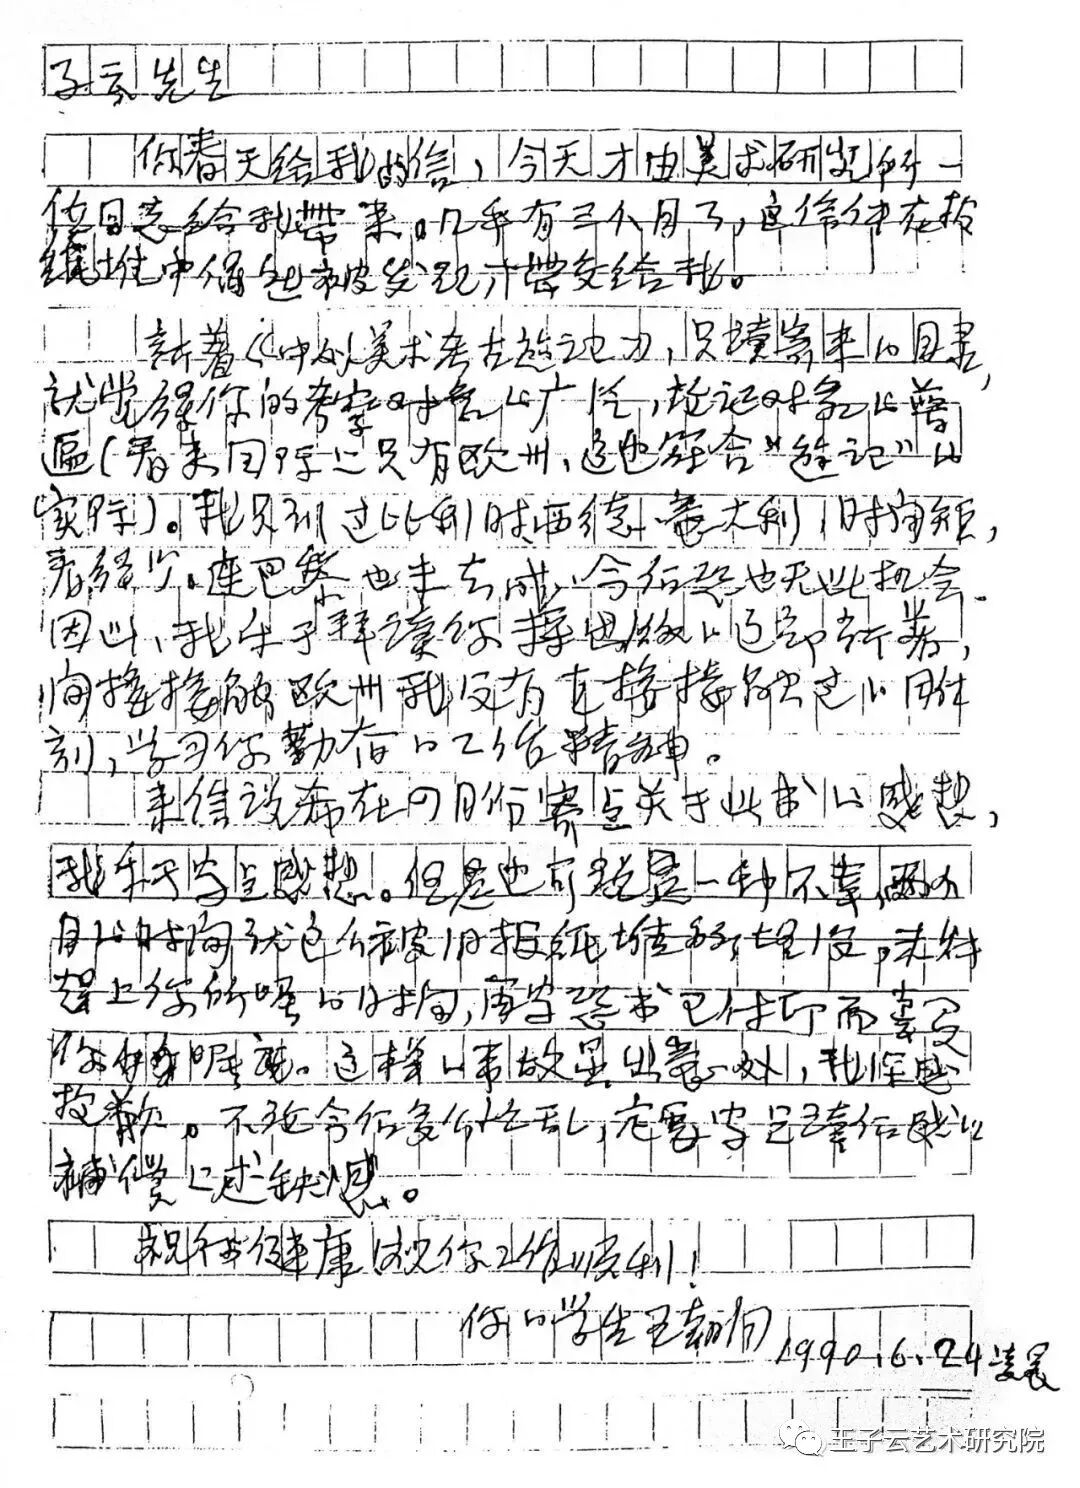 子云先生
你春天给我的信，今天才由美术研究所一
位同志给我带来。几乎有三个月了，这信件在报
纸堆中偶然被发现才带交给我。
新著《中外美术考古游记》，只读寄来的目录，
就觉得你的考察对象的广泛，游记对象的普
遍（看来国际上只有欧洲，这也符合"游记"的
实际）。我只到过比利时西德意大利，时间短，
看得少。连巴黎也未去成，今后恐也无此机会。
因此，我乐于拜读你的这部新著，
间接接触欧洲我没有直接接触过的
刻，学习你勤奋的工作精神。
来信说希在四月份寄点关于此书的感想，
我乐于写点感想。但是也可说是一种不幸，两个
月的时间就这么被旧报纸堆积埋没，未料
赶上你所嘱的时间，再写恐书已付印而辜负
你的。这样的事故是出意外，我深感
抱歉。不论今后多么忙乱，定要写点读后感以
补偿上述缺憾。
祝你健康 祝你工作顺利！
你的学生王朝闻
1990.6.24凌晨
王子云艺术研究院